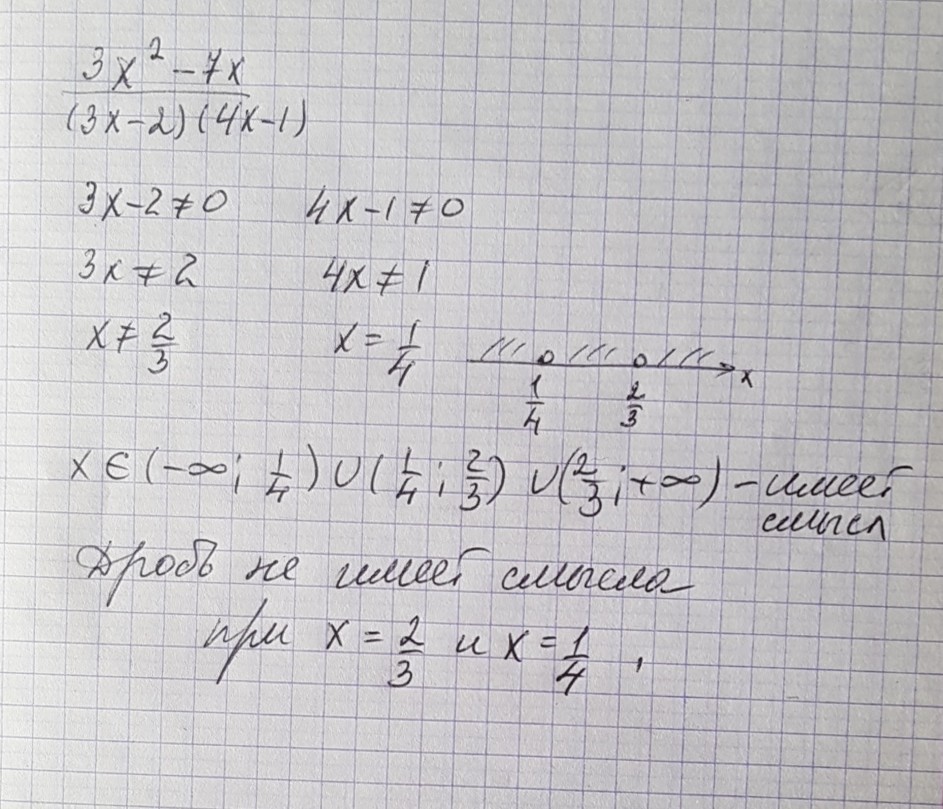 3x² - 7x
(3x-2)(4x-1)
3x-2≠0 4x-1≠0
3x≠2 4x≠1
x≠2/3 x=1/4
x
1/4 2/3
x∈(-∞; 1/4)∪(1/4; 2/3)∪(2/3; +∞) - имеет
смысл
Дробь не имеет смысла
при x=2/3 и x=1/4,